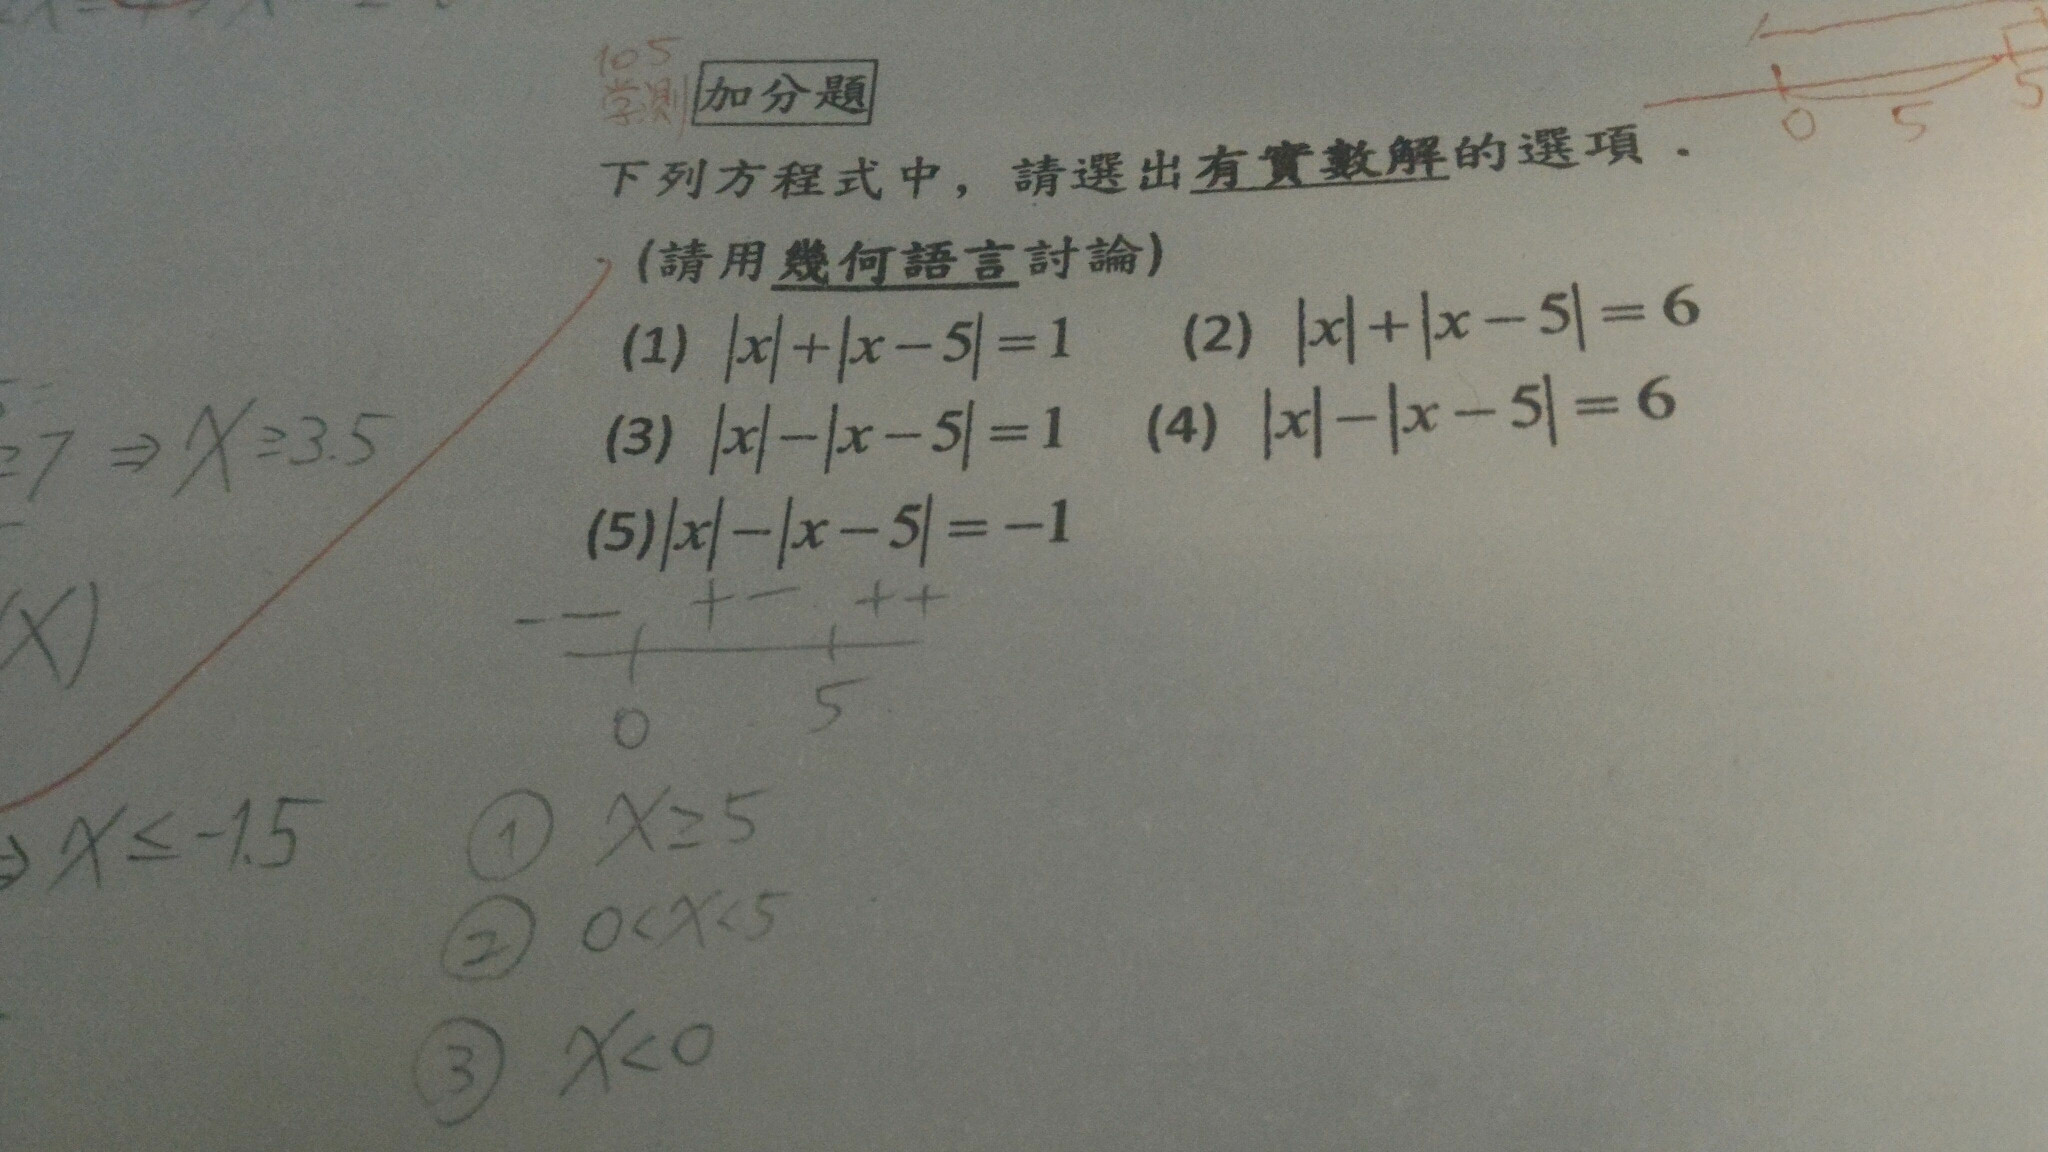 105
学測 加分題
下列方程式中，請選出有實數解的選項．
(請用幾何語言討論)
(1) |x|+|x−5|=1 (2) |x|+|x−5|=6
(3) |x|−|x−5|=1 (4) |x|−|x−5|=6
(5)|x|−|x−5|=−1
−− +− ++
0 5
① x≥5
② 0<x<5
③ x<0
0 5 5
≥7 ⇒ x≥3.5
x)
⇒ x≤-1.5